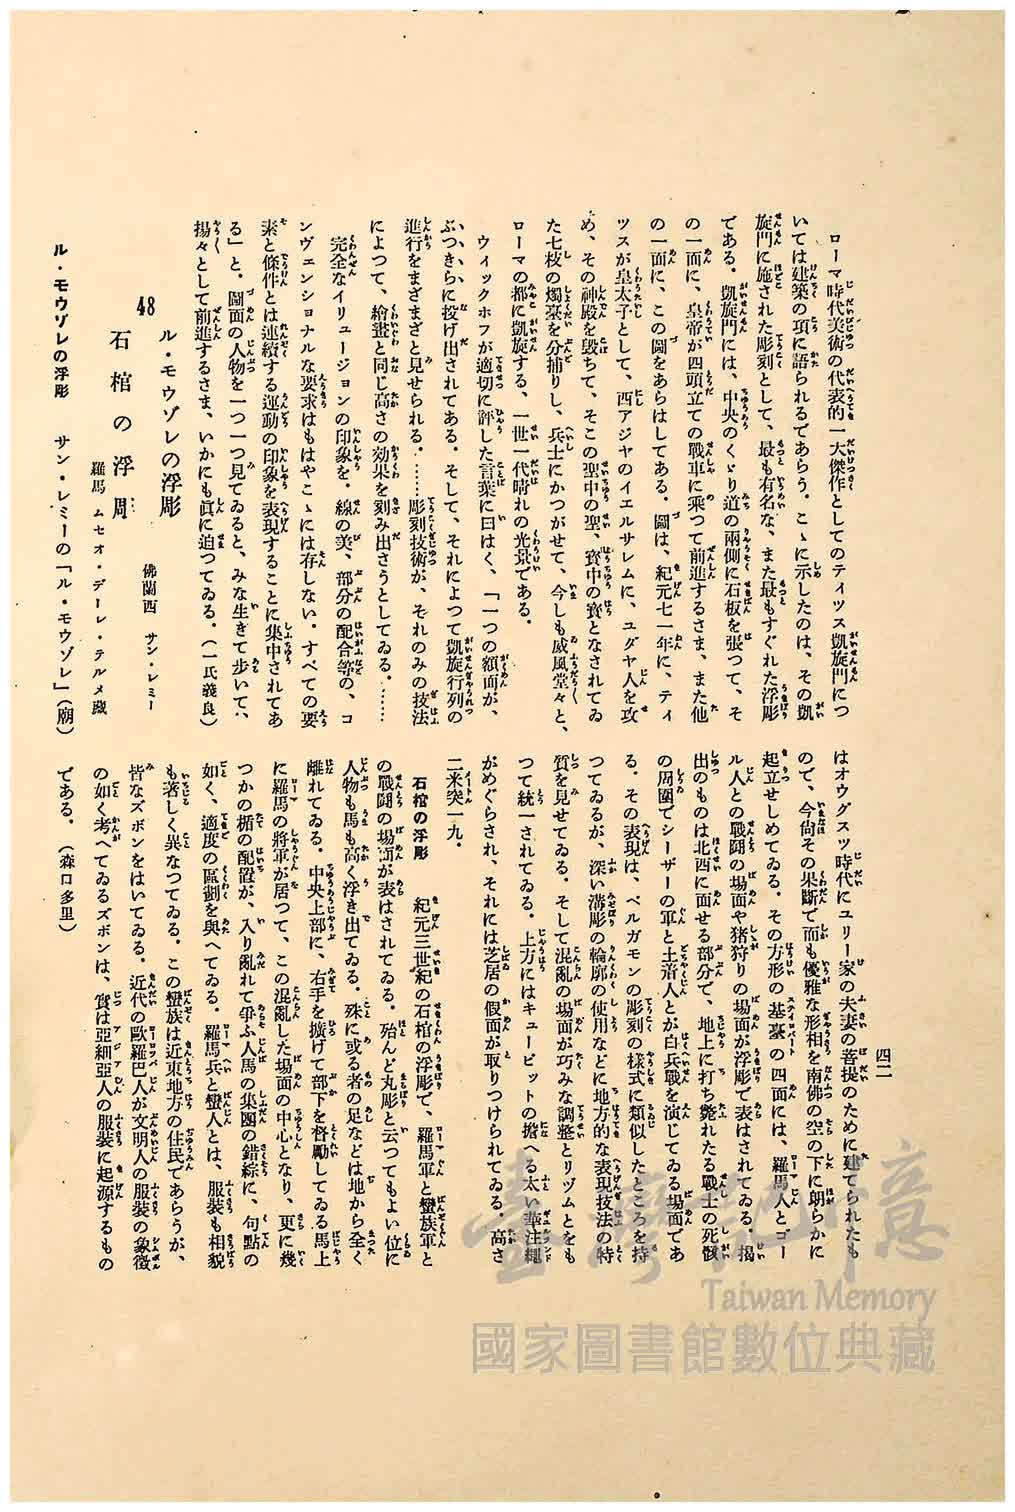 四二
ローマ時代美術の代表的一大傑作としてのティツス凱旋門につ
いては建築の項に語られるであらう。こゝに示したのは、その凱
旋門に施された彫刻として、最も有名な、また最もすぐれた浮彫
である。凱旋門には、中央のくゞり道の兩側に石板を張つて、そ
の一面に、皇帝が四頭立ての戰車に乘つて前進するさま、また他
の一面に、この圖をあらはしてある。圖は、紀元七一年に、ティ
ツスが皇太子として、西アジヤのイエルサレムに、ユダヤ人を攻
め、その神殿を毀ちて、そこの聖中の聖、寳中の寳となされてゐ
た七枝の燭臺を分捕りし、兵士にかつがせて、今しも威風堂々と、
ローマの都に凱旋する、一世一代晴れの光景である。
ウィックホフが適切に評した言葉に曰はく、「一つの額面が、
ぶつきらに投げ出されてある。そして、それによつて凱旋行列の
進行をまざまざと見せられる。……彫刻技術が、それのみの技法
によつて、繪畫と同じ高さの効果を刻み出さうとしてゐる。……
完全なイリュージョンの印象を。線の美、部分の配合等の、コ
ンヴェンショナルな要求はもはやこゝには存しない。すべての要
素と條件とは連續する運動の印象を表現することに集中されてあ
る」と。圖面の人物を一つ一つ見てゐると、みな生きて歩いて、
揚々として前進するさま、いかにも眞に迫つてゐる。（一氏義良）
48
ル・モウゾレの浮彫
佛蘭西 サン・レミー
石棺の浮周
羅馬 ムセオ・デーレ・テルメ藏
ル・モウゾレの浮彫 サン・レミーの「ル・モウゾレ」（廟）
はオウグスツ時代にユリー家の夫妻の菩提のために建てられたも
ので、今尙その果斷で而も優雅な形相を南佛の空の下に朗らかに
起立せしめてゐる。その方形の基臺の四面には、羅馬人とゴー
ル人との戰鬪の場面や猪狩りの場面が浮彫で表はされてゐる。揭
出のものは北西に面せる部分で、地上に打ち斃れたる戰士の死骸
の周圍でシーザーの軍と土着人とが白兵戰を演じてゐる場面であ
る。その表現は、ベルガモンの彫刻の樣式に類似したところを持
つてゐるが、深い溝彫の輪廓の使用などに地方的な表現技法の特
質を見せてゐる。そして混亂の場面が巧みな調整とリヅムとをも
つて統一されてゐる。上方にはキュービットの擔へる太い華注繩
がめぐらされ、それには芝居の假面が取りつけられてゐる。高さ
二米突一九。
石棺の浮彫 紀元三世紀の石棺の浮彫で、羅馬軍と蠻族軍と
の戰鬪の場面が表はされてゐる。殆んど丸彫と云つてもよい位に
人物も馬も高く浮き出てゐる。殊に或る者の足などは地から全く
離れてゐる。中央上部に、右手を擴げて部下を督勵してゐる馬上
に羅馬の將軍が居つて、この混亂した場面の中心となり、更に幾
つかの楯の配置が、入り亂れて爭ふ人馬の集團の錯綜に、句點の
如く、適度の區劃を與へてゐる。羅馬兵と蠻人とは、服裝も相貌
も著しく異なつてゐる。この蠻族は近東地方の住民であらうが、
皆なズボンをはいてゐる。近代の歐羅巴人が文明人の服裝の象徵
の如く考へてゐるズボンは、實は亞細亞人の服裝に起源するもの
である。（森口多里）
臺灣記憶
Taiwan Memory
國家圖書館數位典藏